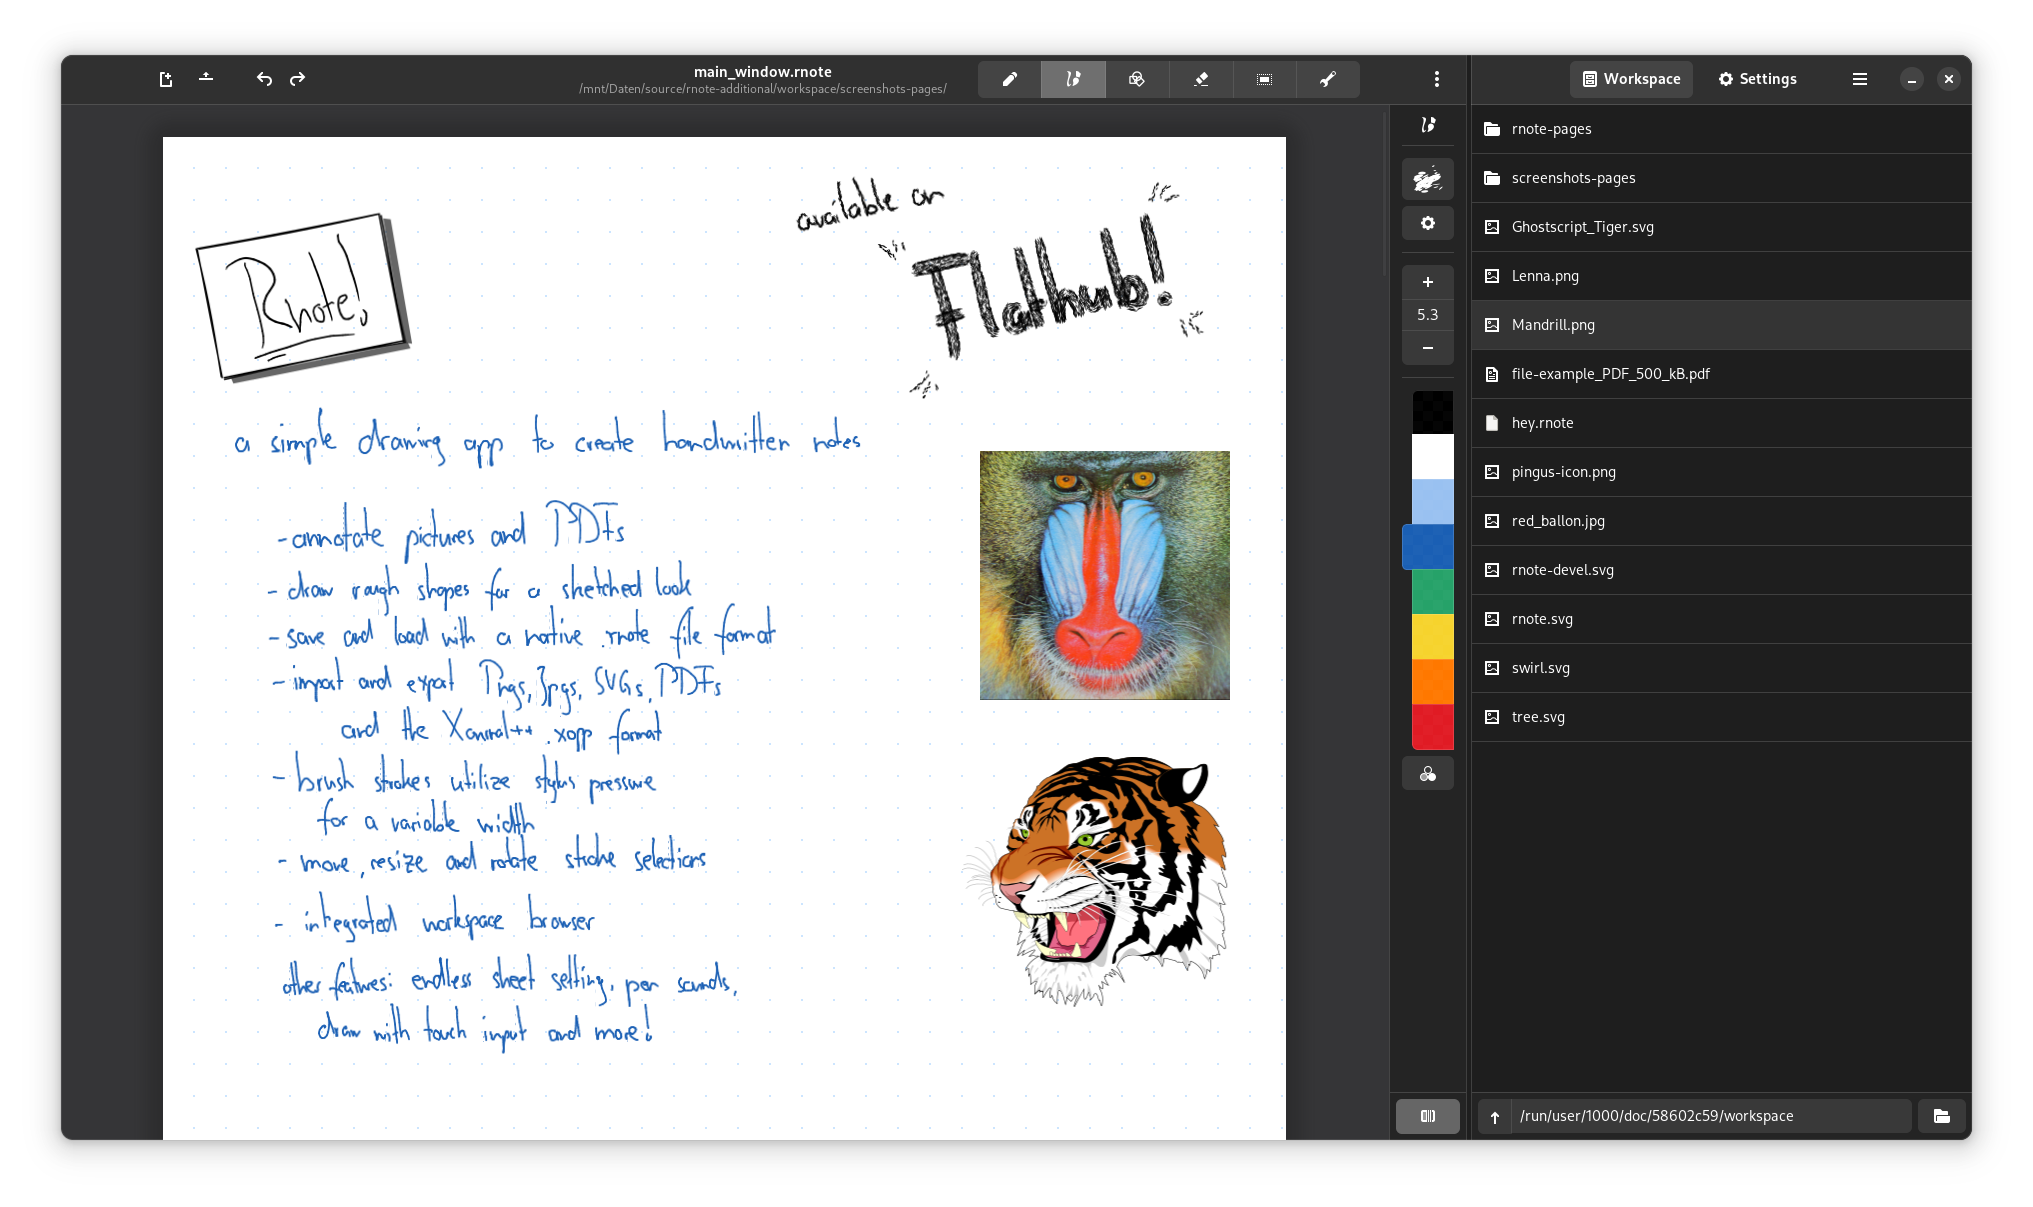 main_window.rnote
/mnt/Daten/source/rnote-additional/workspace/screenshots-pages/
Workspace
Settings
Rnote!
available on
Flathub!
a simple drawing app to create handwritten notes
- annotate pictures and PDFs
- draw rough shapes for a sketched look
- save and load with a native .rnote file format
- import and export Pngs, Jpgs, SVGs, PDFs
and the Xournal++ .xopp format
- brush strokes utilize stylus pressure
for a variable width
- move, resize and rotate stroke selections
- integrated workspace browser
other features: endless sheet setting, pen sounds,
draw with touch input and more!
5.3
rnote-pages
screenshots-pages
Ghostscript_Tiger.svg
Lenna.png
Mandrill.png
file-example_PDF_500_kB.pdf
hey.rnote
pingus-icon.png
red_ballon.jpg
rnote-devel.svg
rnote.svg
swirl.svg
tree.svg
/run/user/1000/doc/58602c59/workspace